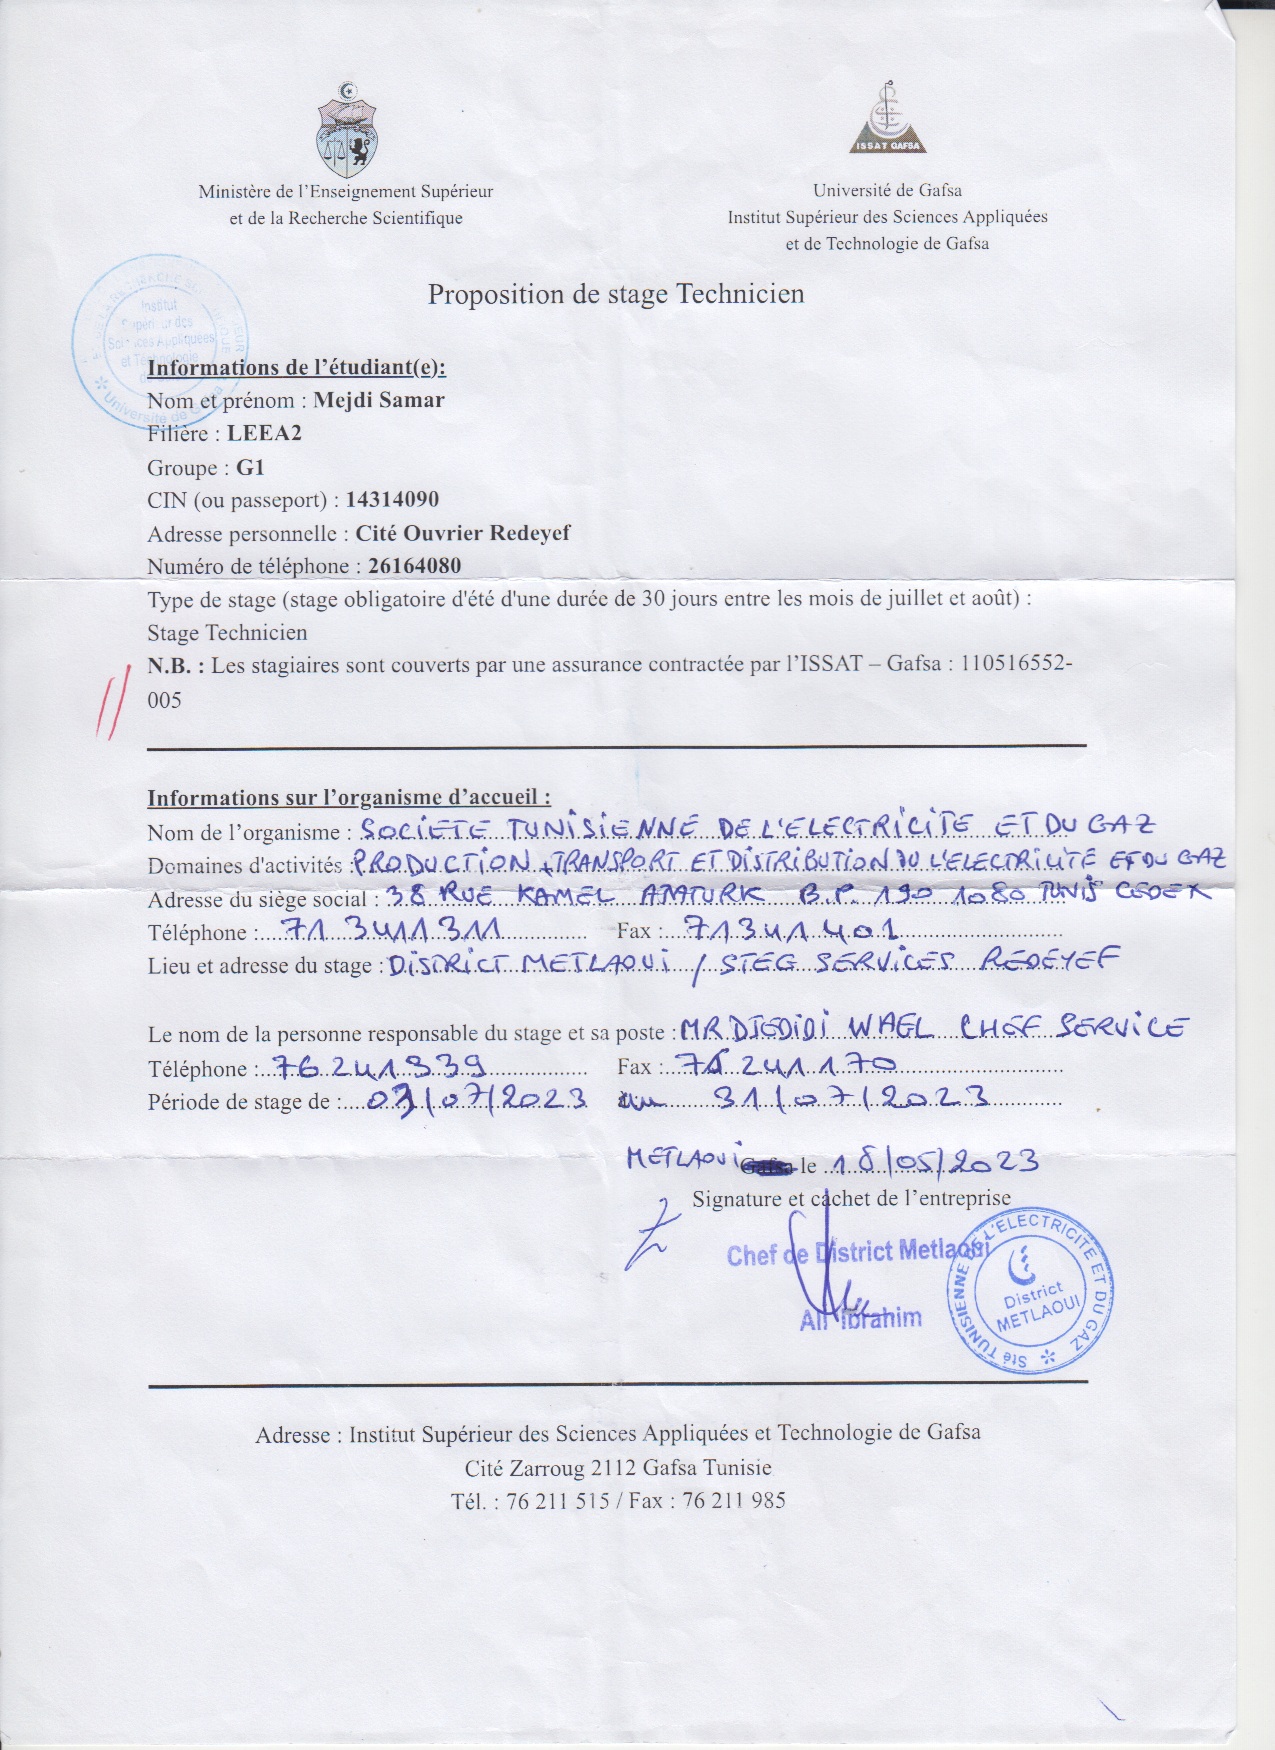 ISSAT GAFSA
Ministère de l'Enseignement Supérieur
et de la Recherche Scientifique
Université de Gafsa
Institut Supérieur des Sciences Appliquées
et de Technologie de Gafsa
Institut
Supérieur des
Sciences Appliquées
et Technologie
Université de Gafsa
Proposition de stage Technicien
Informations de l'étudiant(e):
Nom et prénom : Mejdi Samar
Filière : LEEA2
Groupe : G1
CIN (ou passeport) : 14314090
Adresse personnelle : Cité Ouvrier Redeyef
Numéro de téléphone : 26164080
Type de stage (stage obligatoire d'été d'une durée de 30 jours entre les mois de juillet et août) :
Stage Technicien
N.B. : Les stagiaires sont couverts par une assurance contractée par l'ISSAT – Gafsa : 110516552-
005
Informations sur l'organisme d'accueil :
Nom de l'organisme : SOCIETE TUNISIENNE DE L'ELECTRICITE ET DU GAZ
Domaines d'activités : PRODUCTION, TRANSPORT ET DISTRIBUTION DU L'ELECTRICITE ET DU GAZ
Adresse du siège social : 38 RUE KAMEL ATATURK B.P. 190 1080 TUNIS CEDEX
Téléphone : 71 3411311 Fax : 71341401
Lieu et adresse du stage : DISTRICT METLAOUI / STEG SERVICES REDEYEF
Le nom de la personne responsable du stage et sa poste : MR DJEDIDI WAEL CHEF SERVICE
Téléphone : 76241939 Fax : 76 241 170
Période de stage de : 03/07/2023 au 31/07/2023
METLAOUI le 18/05/2023
Signature et cachet de l'entreprise
Chef de District Metlaoui
Ali Ibrahim
Sté TUNISIENNE DE L'ELECTRICITE ET DU GAZ
District
METLAOUI
Adresse : Institut Supérieur des Sciences Appliquées et Technologie de Gafsa
Cité Zarroug 2112 Gafsa Tunisie
Tél. : 76 211 515 / Fax : 76 211 985